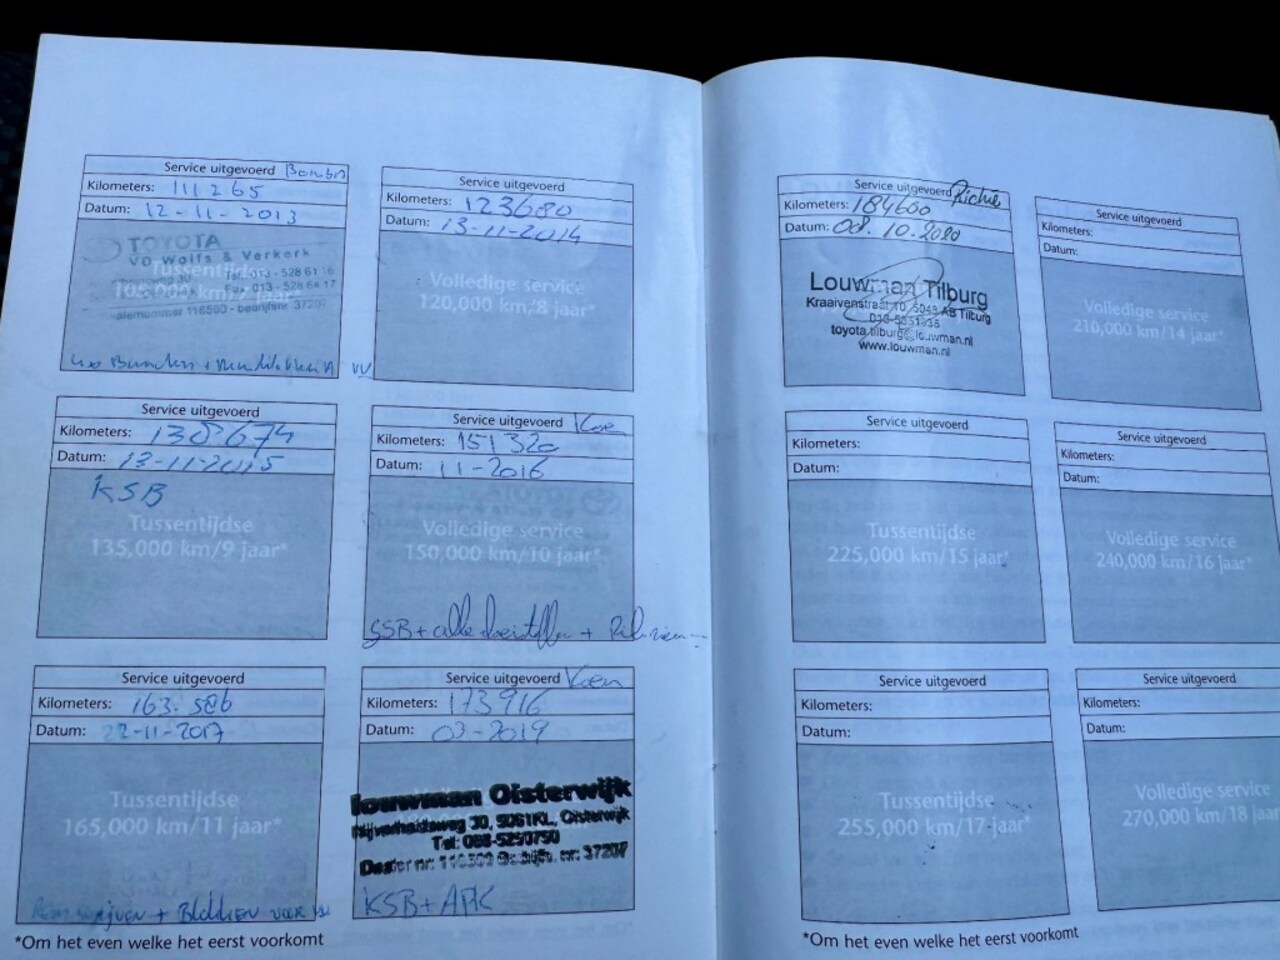 Service uitgevoerd
Kilometers: 111265
Datum: 12-11-2013
TOYOTA
VD Wolfs & Verkerk
Tussentijdse
Tel. 013 - 528 61 16
Fax 013 - 528 64 17
105,000 km/7 jaar*
116500 - bedrijfsnr. 37207
4x Banden + VV
Service uitgevoerd
Kilometers: 123680
Datum: 13-11-2014
Volledige service
120,000 km/8 jaar*
Service uitgevoerd
Kilometers: 138674
Datum: 13-11-2015
KSB
Tussentijdse
135,000 km/9 jaar*
Service uitgevoerd Koen
Kilometers: 151320
Datum: 11-2016
Volledige service
150,000 km/10 jaar*
GSB + alle +
Service uitgevoerd
Kilometers: 163.586
Datum: 22-11-2017
Tussentijdse
165,000 km/11 jaar*
+ Blokken
Service uitgevoerd Koen
Kilometers: 173916
Datum: 03-2019
Louwman Oisterwijk
Nijverheidsweg 30, 5061KL, Oisterwijk
Tel: 088-5250750
Dealer nr: Bedrijfs. nr: 37207
KSB + APK
*Om het even welke het eerst voorkomt
Service uitgevoerd Richie
Kilometers: 184600
Datum: 08.10.2020
Louwman Tilburg
Kraaivenstraat 10, 5048 AB Tilburg
toyota.tilburg@louwman.nl
www.louwman.nl
Service uitgevoerd
Kilometers:
Datum:
Volledige service
210,000 km/14 jaar*
Service uitgevoerd
Kilometers:
Datum:
Tussentijdse
225,000 km/15 jaar*
Service uitgevoerd
Kilometers:
Datum:
Volledige service
240,000 km/16 jaar*
Service uitgevoerd
Kilometers:
Datum:
Tussentijdse
255,000 km/17 jaar*
Service uitgevoerd
Kilometers:
Datum:
Volledige service
270,000 km/18 jaar
*Om het even welke het eerst voorkomt